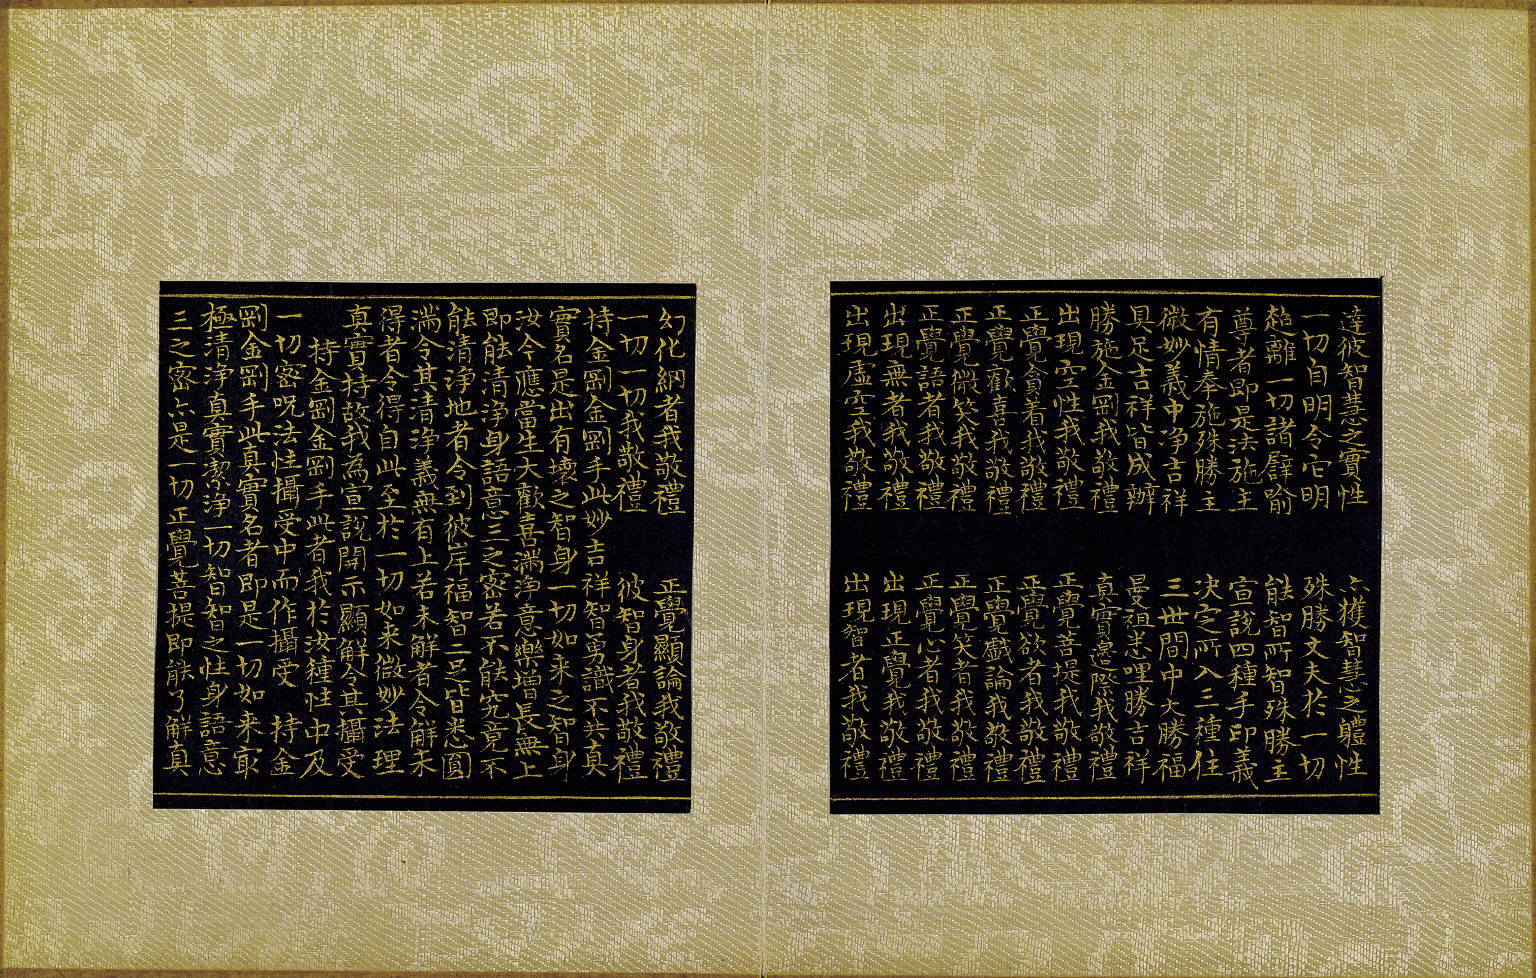 達彼智慧之實性　亦獲智慧之體性
一切自明令它明　殊勝丈夫於一切
超離一切諸譬喻　能智所智殊勝主
尊者即是法施主　宣說四種手印義
有情奉施殊勝主　決定所入三種住
微妙義中淨吉祥　三世間中大勝福
具足吉祥皆成辦　曼祖悉哩勝吉祥
勝施金剛我敬禮　真實邊際我敬禮
出現空性我敬禮　正覺菩提我敬禮
正覺貪著我敬禮　正覺欲者我敬禮
正覺歡喜我敬禮　正覺戲論我敬禮
正覺微笑我敬禮　正覺笑者我敬禮
正覺語者我敬禮　正覺心者我敬禮
出現無者我敬禮　出現正覺我敬禮
出現虛空我敬禮　出現智者我敬禮
幻化網者我敬禮　正覺顯論我敬禮
一切一切我敬禮　彼智身者我敬禮
持金剛金剛手此妙吉祥智勇識不共真
實名是出有壞之智身一切如來之智身
汝今應當生大歡喜滿淨意樂增長無上
即能清淨身語意三之密若不能究竟不
能清淨地者令到彼岸福智二足皆悉圓
滿令其清淨義無有上若未解者令解未
得者令得自此至於一切如來微妙法理
真實持故我為宣說開示顯解令其攝受
持金剛金剛手此者我於汝種性中及
一切密呪法性攝受中而作攝受　持金
剛金剛手此真實名者即是一切如來最
極清淨真實潔淨一切智智之性身語意
三之密亦是一切正覺菩提即能了解真